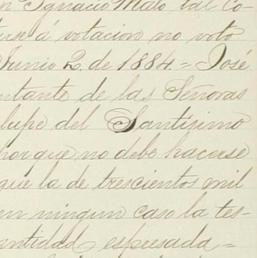 n Ygnacio Malo tal co
tuse á votacion no voto
Junio 2 de 1884 = José
entante de las Señoras
lupe del Santisimo
porque no debe hacerse
que la de trescientos mil
en ningun caso la tes-
antidad espresada =